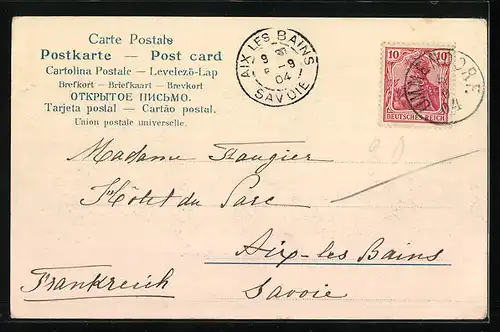 Carte Postale
Postkarte — Post card
Cartolina Postale — Levelező-Lap
Brefkort — Briefkaart — Brevkort
ОТКРЫТОЕ ПИСЬМО.
Tarjeta postal — Cartão postal.
Union postale universelle.
AIX LES BAINS
9 -9
04
SAVOIE
10 10
DEUTSCHES REICH
Madame Faugier
Hôtel du Parc
Aix-les Bains
Frankreich
Savoie